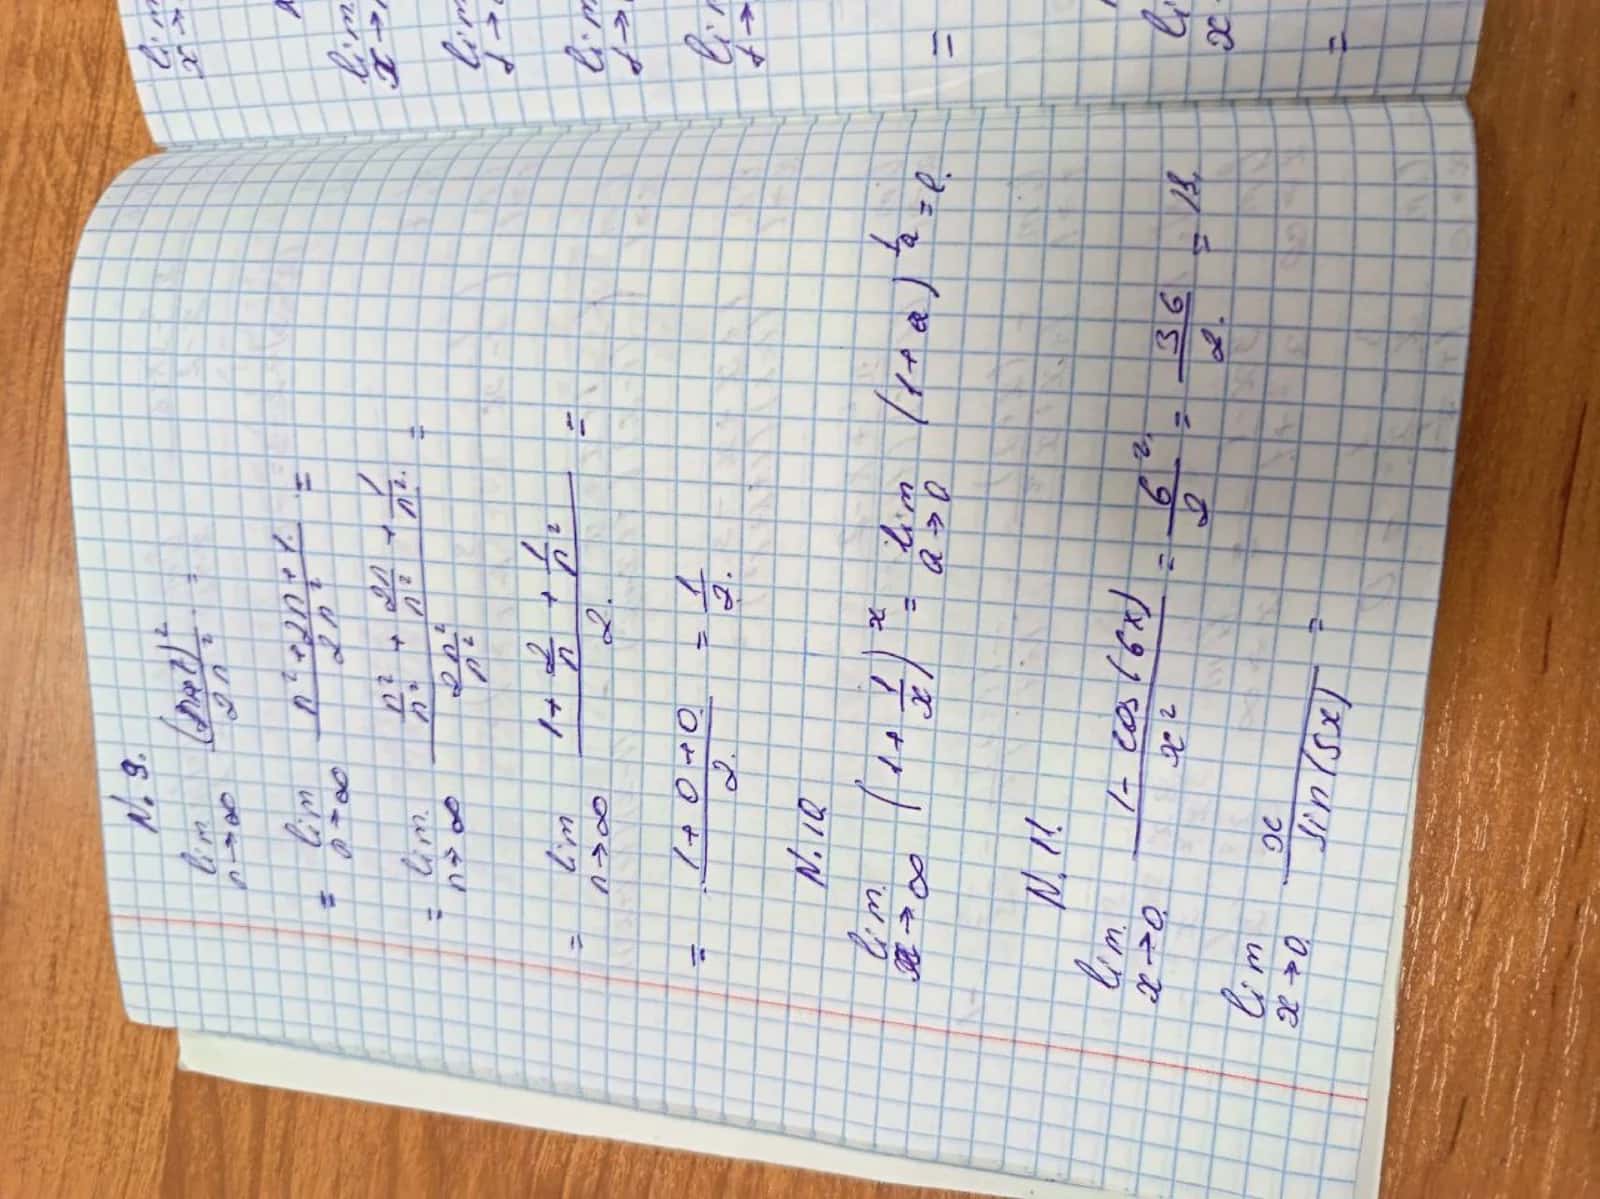 N. 9.
lim n→∞ (n+1)²/2n² =
= lim n→∞ (n²+2n+1)/2n² =
= lim n→∞ (n²/n² + 2n/n² + 1/n²)/(2n²/n²) =
= lim n→∞ (1 + 2/n + 1/n²)/2 =
= (1+0+0)/2 = 1/2.
N. 10
lim x→∞ (1 + 1/x)^x = lim a→0 (1+a)^(1/a) = e.
N. 11.
lim x→0 (1 - cos(6x))/x² = 6²/2 = 36/2 = 18.
lim x→0 x/sin(5x) =